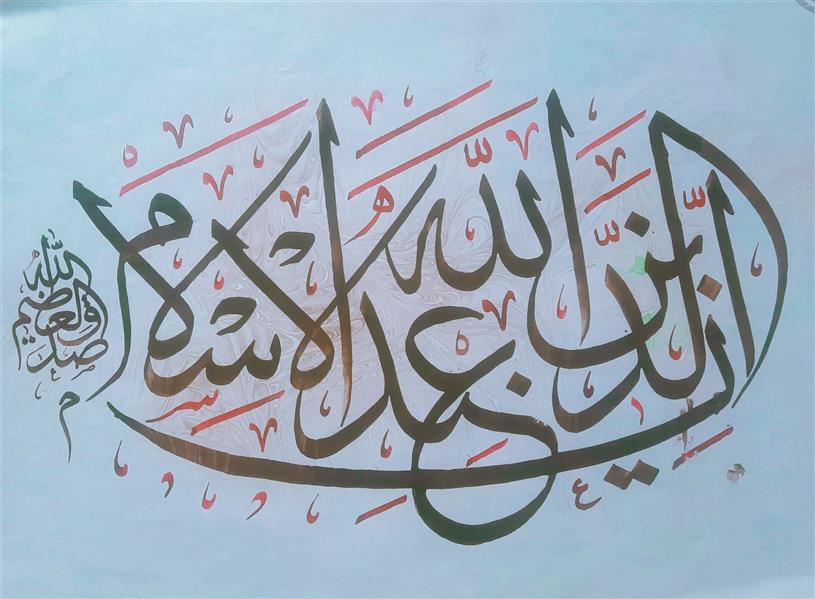 ان الدين عند الله الاسلام
صدق الله العظيم